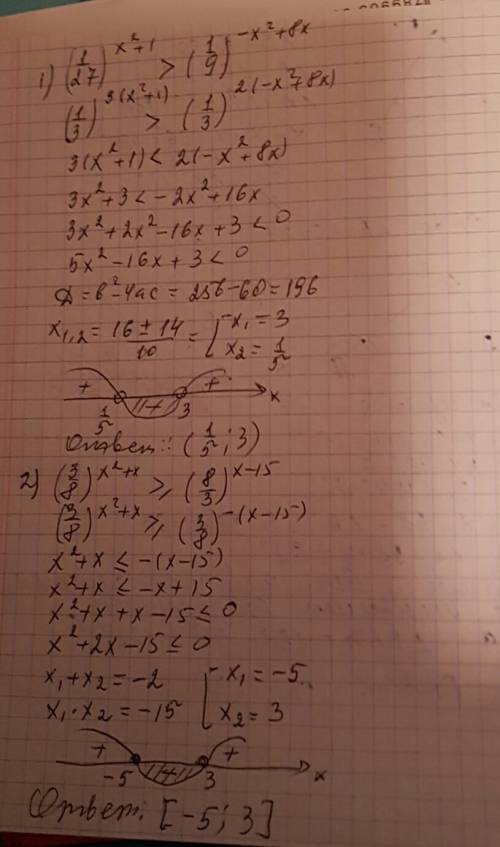 1) (1/27)^(x²+1) > (1/9)^(-x²+8x)
(1/3)^(3(x²+1)) > (1/3)^(2(-x²+8x))
3(x²+1) < 2(-x²+8x)
3x²+3 < -2x²+16x
3x²+2x²-16x+3 < 0
5x²-16x+3 < 0
D = b²-4ac = 256-60 = 196
x₁,₂ = (16 ± 14)/10 = [ x₁ = 3
x₂ = 1/5
+ + x
1/5 3
Ответ: (1/5; 3)
2) (3/8)^(x²+x) ≥ (8/3)^(x-15)
(3/8)^(x²+x) ≥ (3/8)^(-(x-15))
x²+x ≤ -(x-15)
x²+x ≤ -x+15
x²+x+x-15 ≤ 0
x²+2x-15 ≤ 0
x₁+x₂ = -2 [ x₁ = -5
x₁·x₂ = -15 x₂ = 3
+ + x
-5 3
Ответ: [-5; 3]